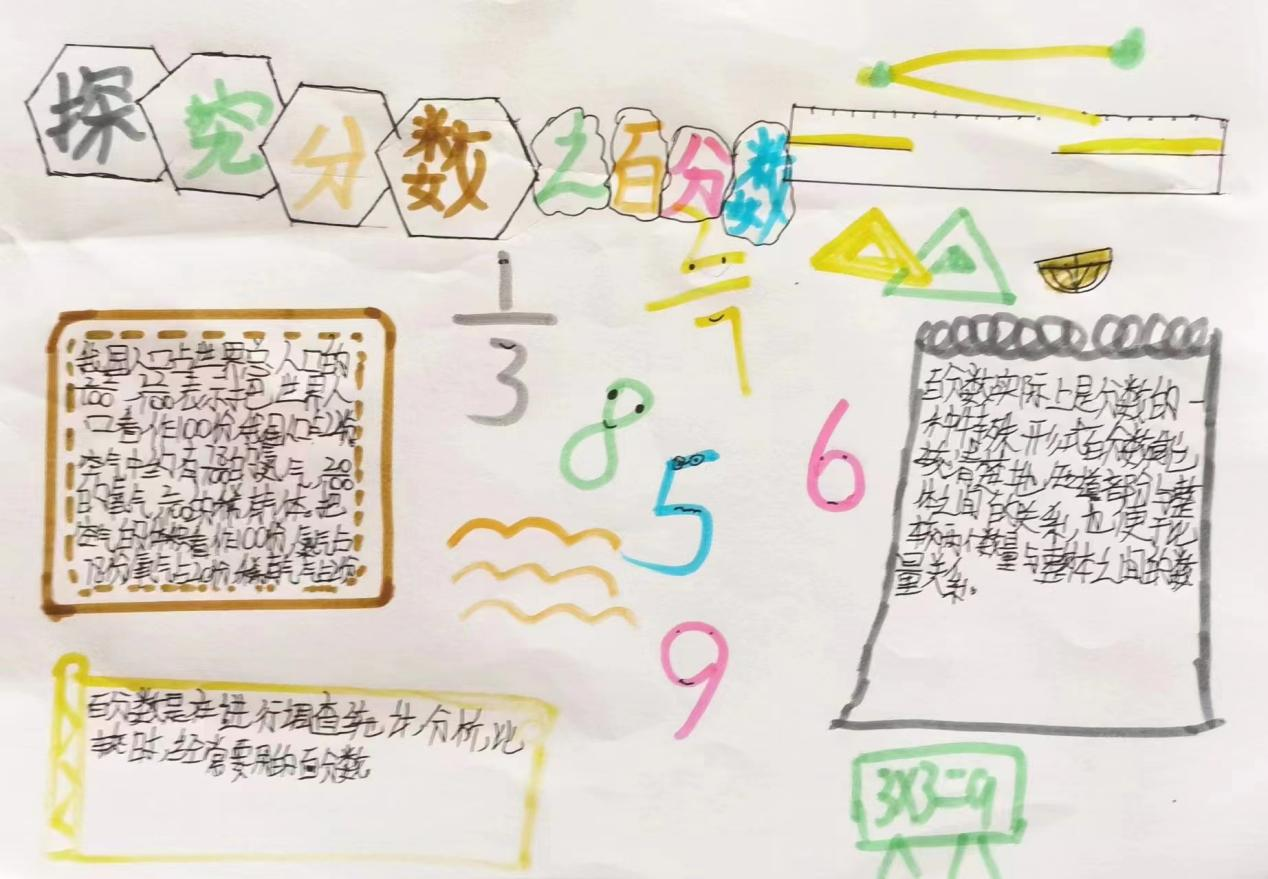 探究分数之百分数
1
3
2
7
8
5
6
9
我国人口占世界总人口的
22/100 22/100表示把世界人
口看作100份我国人口占22份
空气中约有78/100的氮气,20/100
的氧气,2/100的稀有气体,把
空气的体积看作100份,氮气占
78份氧气占20份,稀有气占2份
百分数实际上是分数的一
种特殊形式百分数能
部分与整
体之间的关系,也便于比
较两个数量与整体之间的数
量关系。
百分数是在进行调查统计,分析比
较时,经常要用的百分数
3×3=9